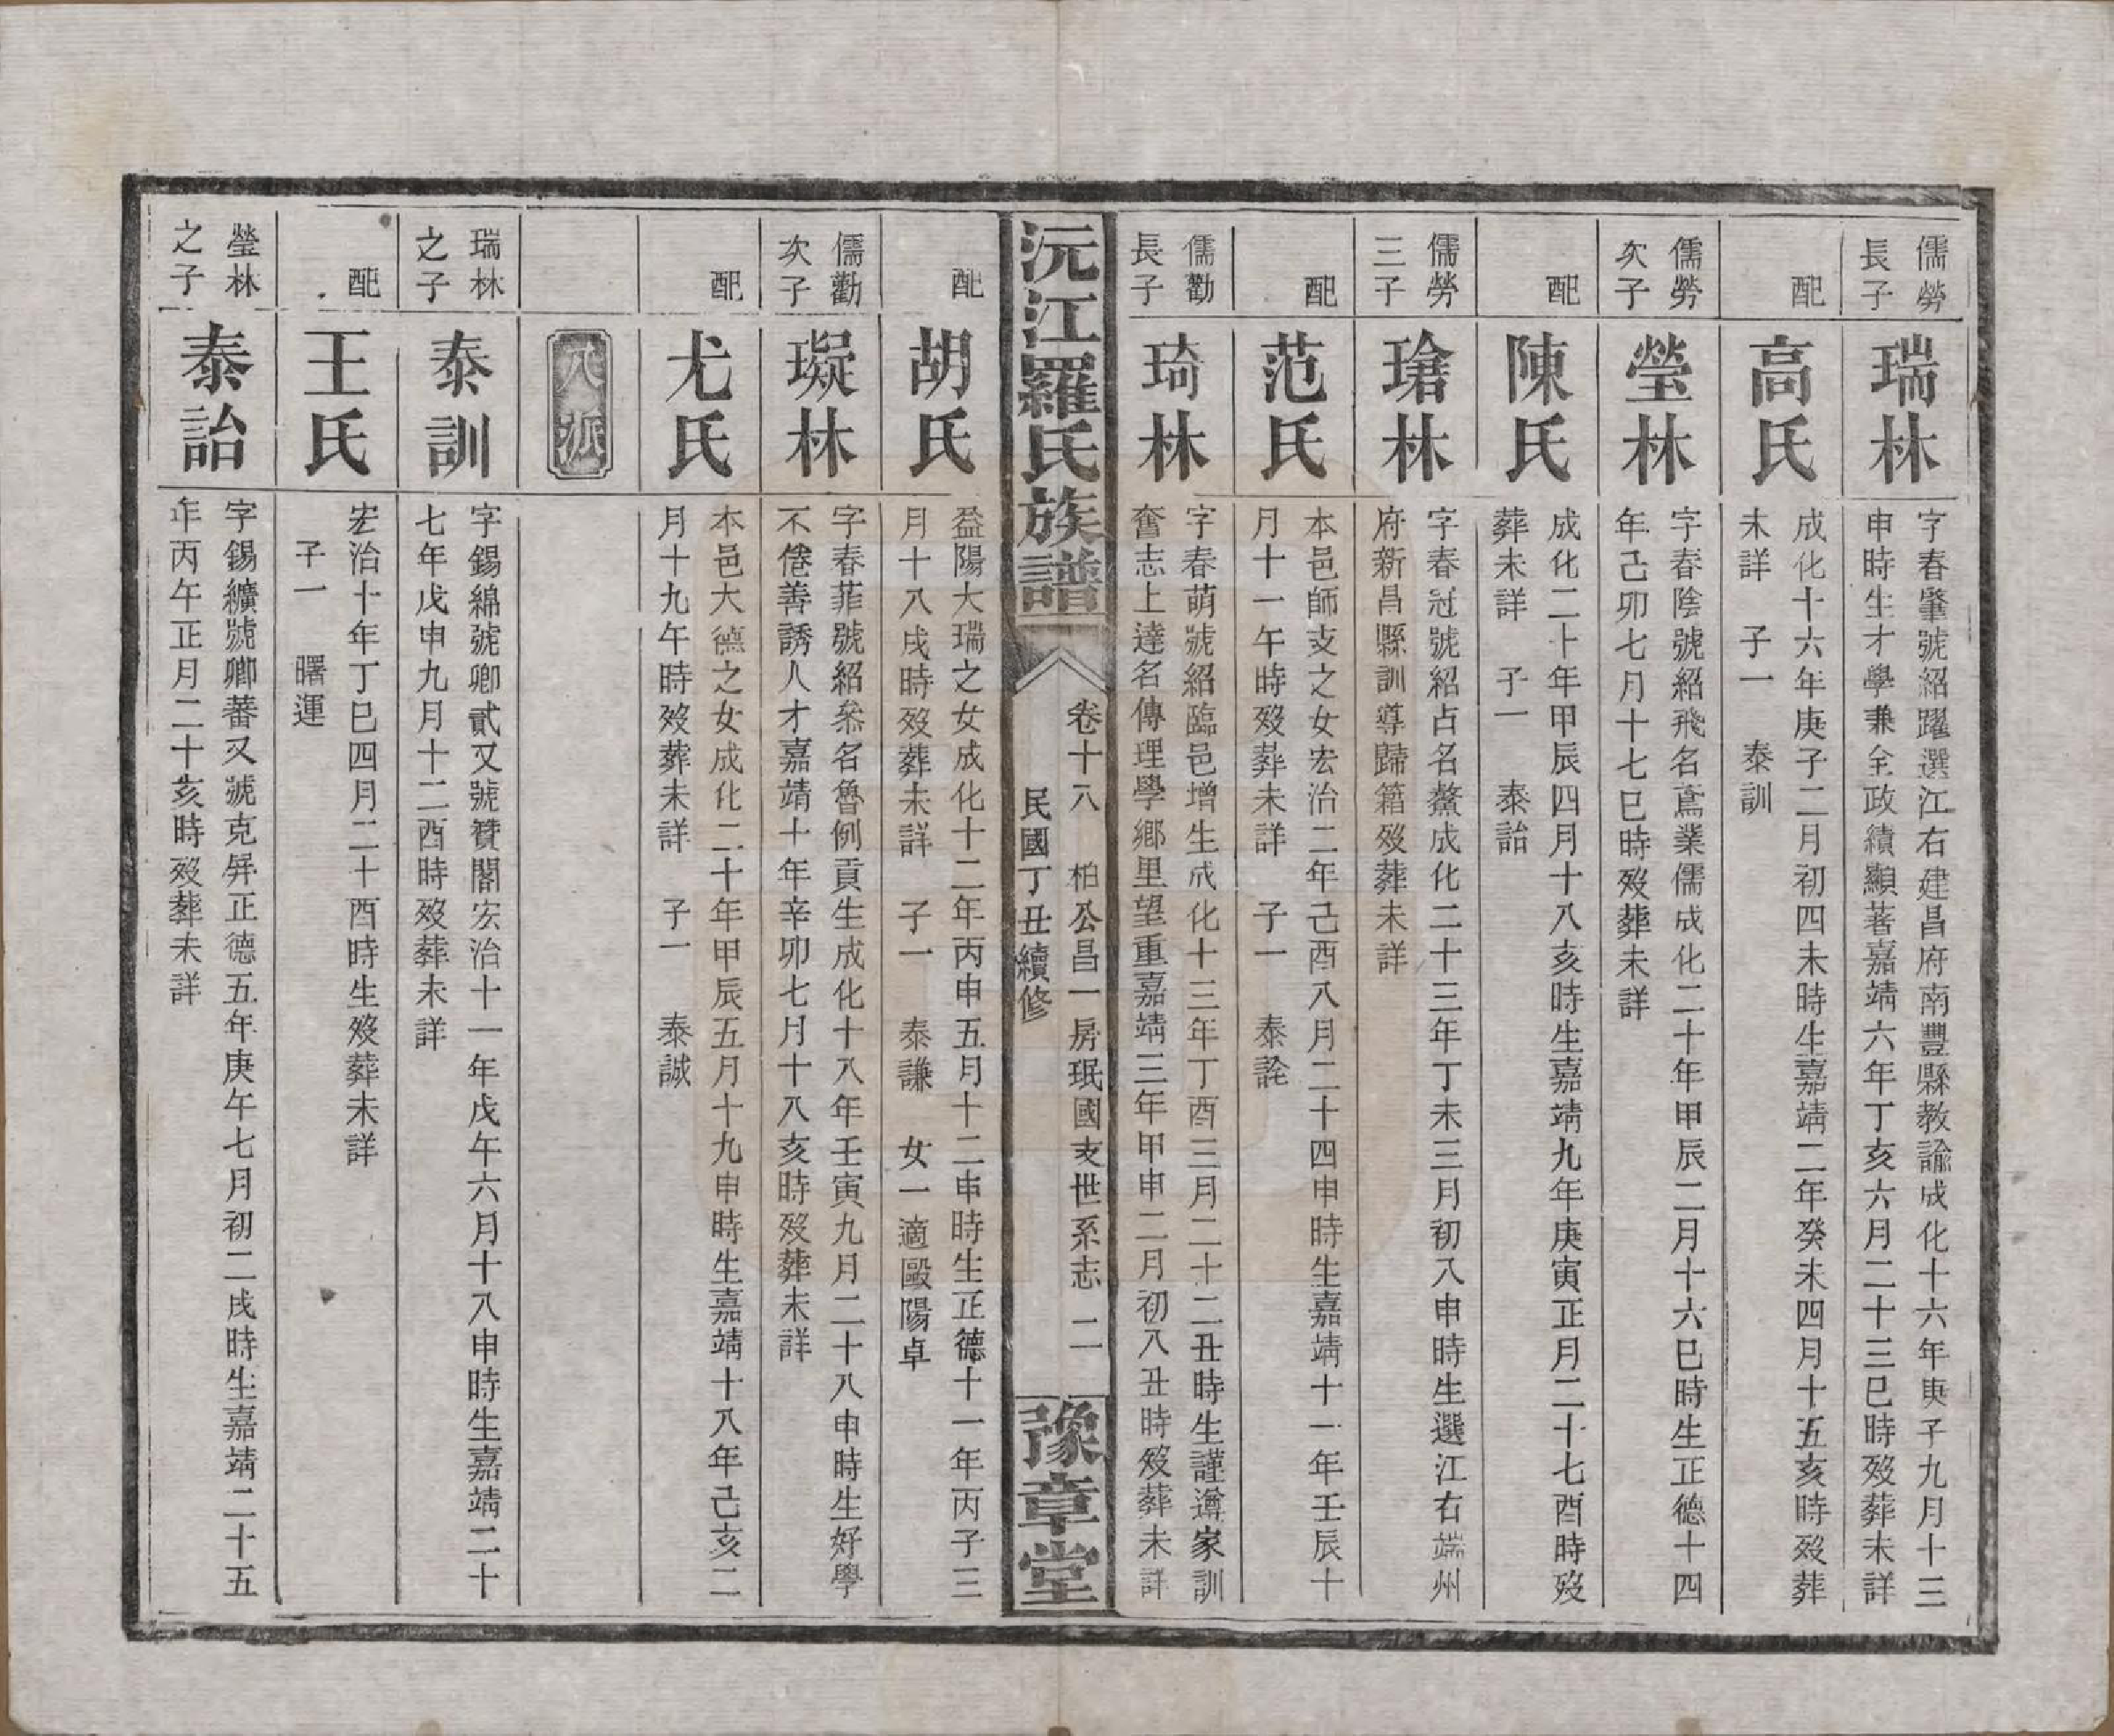 儒勞
長子
瑞林
字春肇號紹躍選江右建昌府南豐縣教諭成化十六年庚子九月十三
申時生才學兼全政績顯著嘉靖六年丁亥六月二十三巳時歿葬未詳
配
高氏
成化十六年庚子二月初四未時生嘉靖二年癸未四月十五亥時歿葬
未詳 子一 泰訓
儒勞
次子
瑩林
字春陰號紹飛名鳶業儒成化二十年甲辰二月十六巳時生正德十四
年己卯七月十七巳時歿葬未詳
配
陳氏
成化二十年甲辰四月十八亥時生嘉靖九年庚寅正月二十七酉時歿
葬未詳 子一 泰詒
儒勞
三子
瑲林
字春冠號紹占名鰲成化二十三年丁未三月初八申時生選江右端州
府新昌縣訓導歸籍歿葬未詳
配
范氏
本邑師支之女宏治二年己酉八月二十四申時生嘉靖十一年壬辰十
月十一午時歿葬未詳 子一 泰詮
儒勸
長子
琦林
字春萌號紹臨邑增生成化十三年丁酉三月二十二丑時生謹遵家訓
奮志上達名傳理學鄉里望重嘉靖三年甲申二月初八丑時歿葬未詳
沅江羅氏族譜
卷十八 柏公昌一房珉國支世系志 二
民國丁丑續修
豫章堂
配
胡氏
益陽大瑞之女成化十二年丙申五月十二申時生正德十一年丙子三
月十八戌時歿葬未詳 子一 泰謙 女一適歐陽卓
儒勸
次子
礙林
字春菲號紹叅名魯例貢生成化十八年壬寅九月二十八申時生好學
不倦善誘人才嘉靖十年辛卯七月十八亥時歿葬未詳
配
尤氏
本邑大德之女成化二十年甲辰五月十九申時生嘉靖十八年己亥二
月十九午時歿葬未詳 子一 泰誠
八派
瑞林
之子
泰訓
字錫綿號卿貳又號贊閣宏治十一年戊午六月十八申時生嘉靖二十
七年戊申九月十二酉時歿葬未詳
配
王氏
宏治十年丁巳四月二十酉時生歿葬未詳
子一 曙運
瑩林
之子
泰詒
字錫纊號卿蕃又號克昇正德五年庚午七月初二戌時生嘉靖二十五
年丙午正月二十亥時歿葬未詳